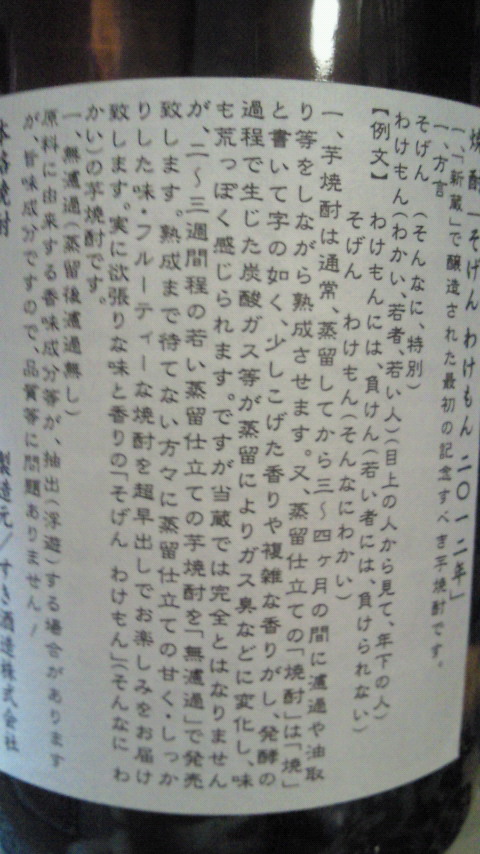 焼酎「そげん わけもん 二〇一二年」
一、「新蔵」で醸造された最初の記念すべき芋焼酎です。
一、方言
そげん （そんなに、特別）
わけもん（わかい、若者、若い人）（目上の人から見て、年下の人）
【例文】 わけもんには、負けん（若い者には、負けられない）
そげん わけもん（そんなにわかい）
一、芋焼酎は通常、蒸留してから三～四ヶ月の間に濾過や油取
り等をしながら熟成させます。又、蒸留仕立ての「焼酎」は「焼」
と書いて字の如く、少しこげた香りや複雑な香りがし、発酵の
過程で生じた炭酸ガス等が蒸留によりガス臭などに変化し、味
も荒っぽく感じられます。ですが当蔵では完全とはなりません
が、二～三週間程の若い蒸留仕立ての芋焼酎を「無濾過」で発売
致します。熟成まで待てない方々に蒸留仕立ての甘く・しっか
りした味・フルーティーな焼酎を超早出しでお楽しみをお届け
致します。実に欲張りな味と香りの「そげん わけもん」（そんなに わ
かい）の芋焼酎です。
一、無濾過（蒸留後濾過無し）
原料に由来する香味成分等が、抽出（浮遊）する場合があります
が、旨味成分ですので、品質等に問題ありません！
本格焼酎 製造元／すき酒造株式会社